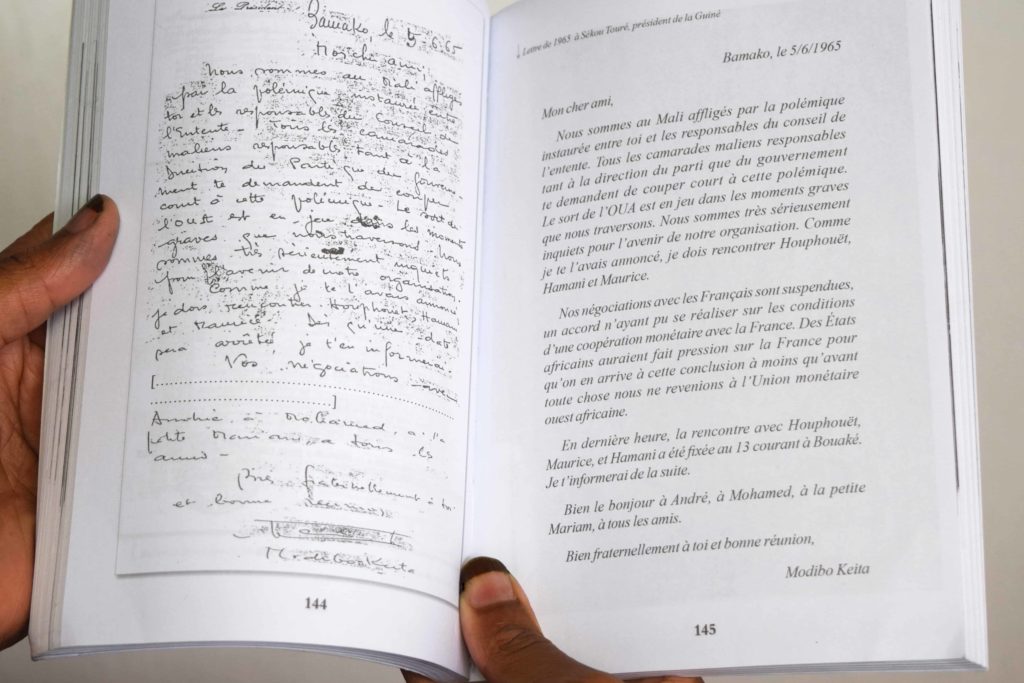 Le Président
Bamako, le 5.6.65
Mon cher ami,
Nous sommes au Mali affligés
par la polémique instaurée entre
toi et les responsables du Conseil de
l'Entente - Tous les camarades
maliens responsables tant à la
Direction du Parti que du gouverne-
ment te demandent de couper
court à cette polémique. Le sort de
l'OUA est en jeu dans les moments
graves que nous traversons. Nous
sommes très sérieusement inquiets
pour l'avenir de notre organisation.
Comme je te l'avais annoncé
je dois rencontrer Houphouët, Hamani
et Maurice. Dès qu'une date
sera arrêtée, je t'en informerai.
Nos négociations
[..............................................
...............................]
André, à Mohamed, à la
petite Mariam, à tous les
amis -
Bien fraternellement à toi
et bonne
Modibo Keita
144
Lettre de 1965 à Sékou Touré, président de la Guiné
Bamako, le 5/6/1965
Mon cher ami,
Nous sommes au Mali affligés par la polémique
instaurée entre toi et les responsables du conseil de
l'entente. Tous les camarades maliens responsables
tant à la direction du parti que du gouvernement
te demandent de couper court à cette polémique.
Le sort de l'OUA est en jeu dans les moments graves
que nous traversons. Nous sommes très sérieusement
inquiets pour l'avenir de notre organisation. Comme
je te l'avais annoncé, je dois rencontrer Houphouët,
Hamani et Maurice.
Nos négociations avec les Français sont suspendues,
un accord n'ayant pu se réaliser sur les conditions
d'une coopération monétaire avec la France. Des États
africains auraient fait pression sur la France pour
qu'on en arrive à cette conclusion à moins qu'avant
toute chose nous ne revenions à l'Union monétaire
ouest africaine.
En dernière heure, la rencontre avec Houphouët,
Maurice, et Hamani a été fixée au 13 courant à Bouaké.
Je t'informerai de la suite.
Bien le bonjour à André, à Mohamed, à la petite
Mariam, à tous les amis.
Bien fraternellement à toi et bonne réunion,
Modibo Keita
145